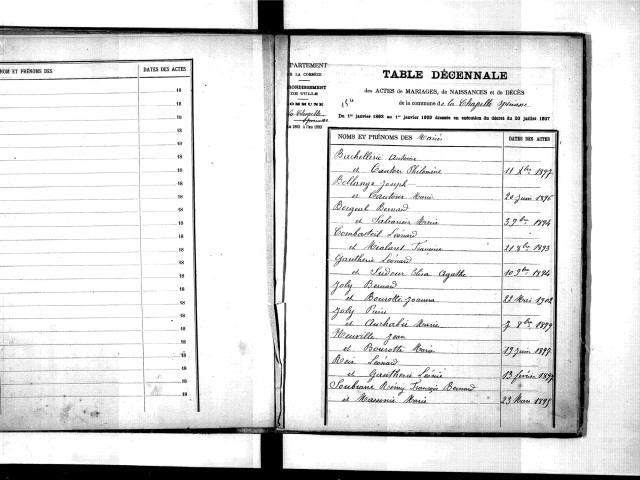 NOM ET PRÉNOMS DES
DATES DES ACTES
18
18
18
18
18
18
18
18
18
18
18
18
18
18
18
18
18
18
DÉPARTEMENT
DE LA CORRÈZE
ARRONDISSEMENT
DE TULLE
COMMUNE
TABLE DÉCENNALE
des ACTES de MARIAGES, de NAISSANCES et de DÉCÈS
de la commune de la Chapelle Spinasse
Du 1er janvier 1893 au 1er janvier 1903 dressée en exécution du décret du 20 juillet 1807
NOMS ET PRÉNOMS DES Mariés
DATES DES ACTES
Bachellerie Antoine
et Cantou Philomène 11 Xbre 1897
Bellange Joseph
et Cantou Marie 20 juin 1896
Bernard
et Marie 3 9bre 1894
Combasteil Léonard
et Mialaret Françoise 21 8bre 1893
Gautherie Léonard
et Sudour Elisa Agathe 10 9bre 1894
Joly Bernard
et Bourotte Joanna 22 Mai 1902
Joly Pierre
et Marie 7 8bre 1899
Neuville Jean
et Bourotte Marie 19 juin 1899
Léonard
et Gautherie Léonie 13 février 1897
Soubrane Rémy François Bernard
et Marie 23 Mars 1895